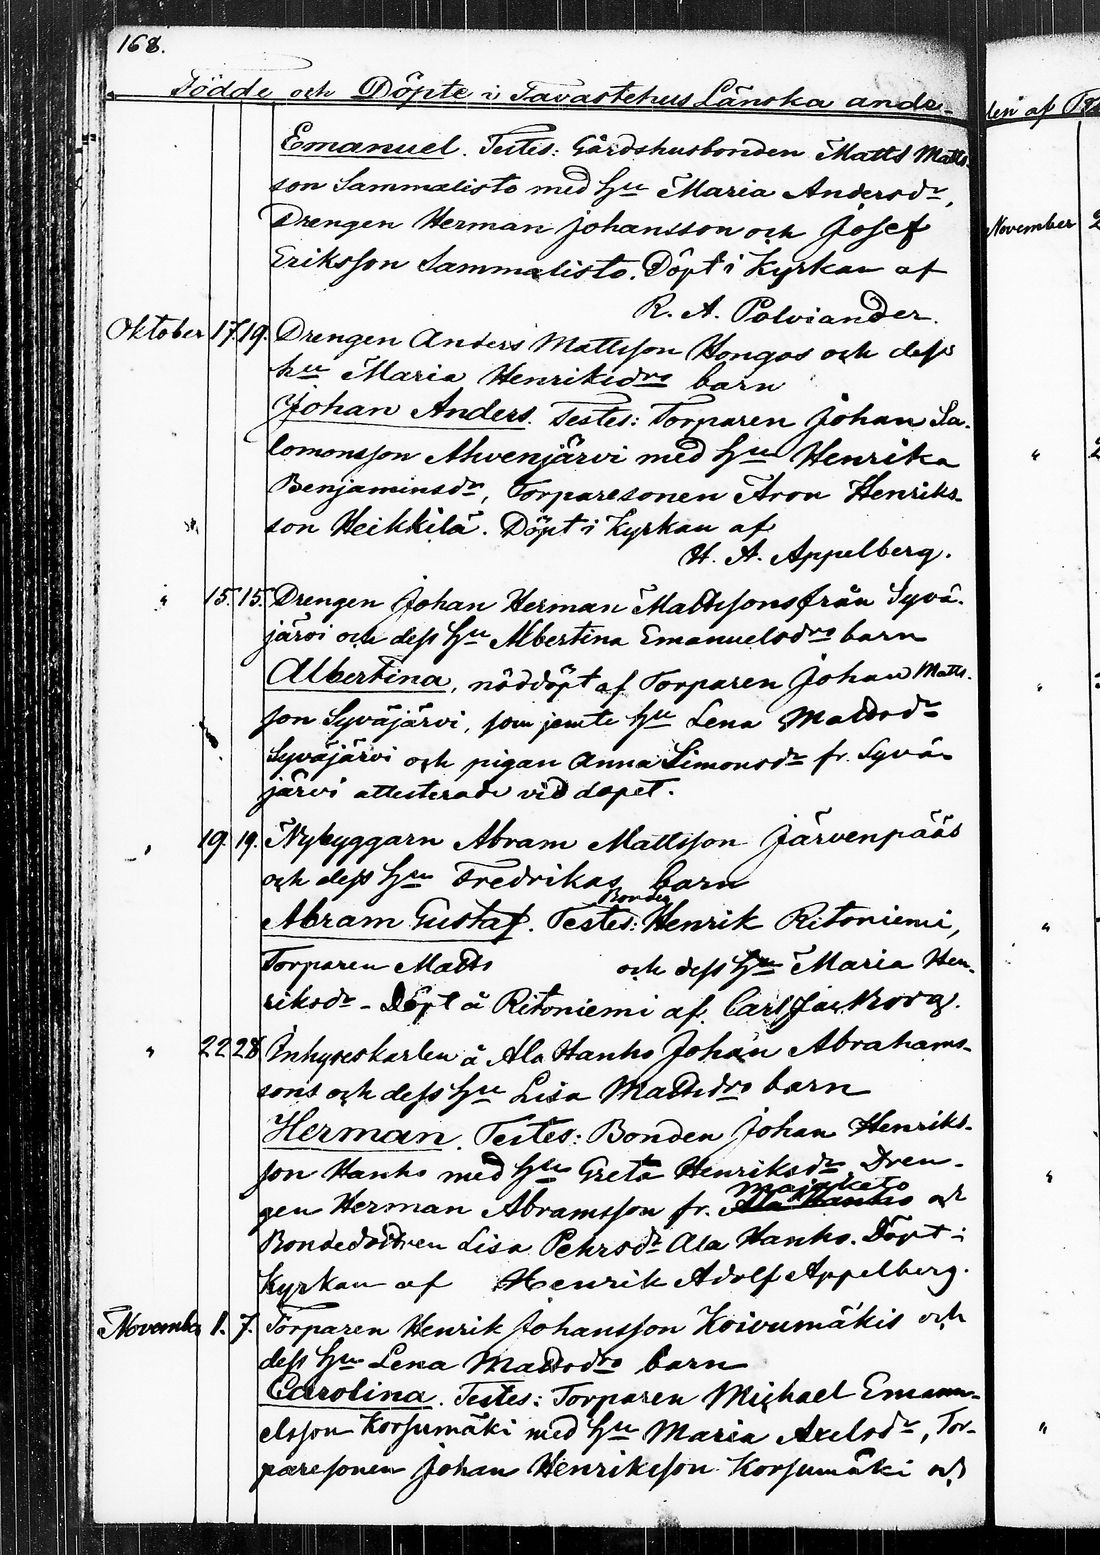 168.
Födde och Döpte i Tavastehus Länska ande-
Emanuel. Testes: Gårdshusbonden Matts Matts
son Sammalisto med hu Maria Andersdr,
Drengen Herman Johansson och Josef
Eriksson Sammalisto. Döpt i Kyrkan af
R. A. Polviander.
Oktober 17. 19. Drengen Anders Mattsson Hongos och dess
hu Maria Henriksdrs barn
Johan Anders. Testes: Torparen Johan Sa-
lomonsson Ahvenjärvi med hu Henrika
Benjaminsdr, Torparesonen Aron Henriks-
son Heikkilä. Döpt i Kyrkan af
H. A. Appelberg.
" 15. 15. Drengen Johan Herman Mattssons från Syvä-
järvi och dess hu Albertina Emanuelsdrs barn
Albertina, nöddöpt af Torparen Johan Matts-
son Syväjärvi, som jemte hu Lena Mattsdr
Syväjärvi och pigan Anna Simonsdr fr. Syvä-
järvi attesterade vid dopet.
" 19. 19. Nybyggarn Abram Mattsson Järvenpääs
och dess hu Fredrikas barn
Bonden
Abram Gustaf. Testes: Henrik Ritoniemi,
Torparen Matts och dess hu Maria Hen-
riksdr - Döpt å Ritoniemi af Carl
" 22 28 Inhyseskarlen å Ala Hanho Johan Abrahams-
sons och dess hu Lisa Mattsdrs barn
Herman. Testes: Bonden Johan Henriks-
son Hanho med hu Greta Henriksdr, Dren-
gen Herman Abramsson fr. Ala Hanho och
Bondedottren Lisa Pehrsdr Ala Hanho. Döpt i
Kyrkan af Henrik Adolf Appelberg.
November 1. 7. Torparen Henrik Johansson Koivumäkis och
dess hu Lena Mattsdrs barn
Carolina. Testes: Torparen Michael Emanu-
elsson Korsumäki med hu Maria Axelsdr, Tor-
paresonen Johan Henriksson Korsumäki och
den af
November 2
" 2
"
"
"
"